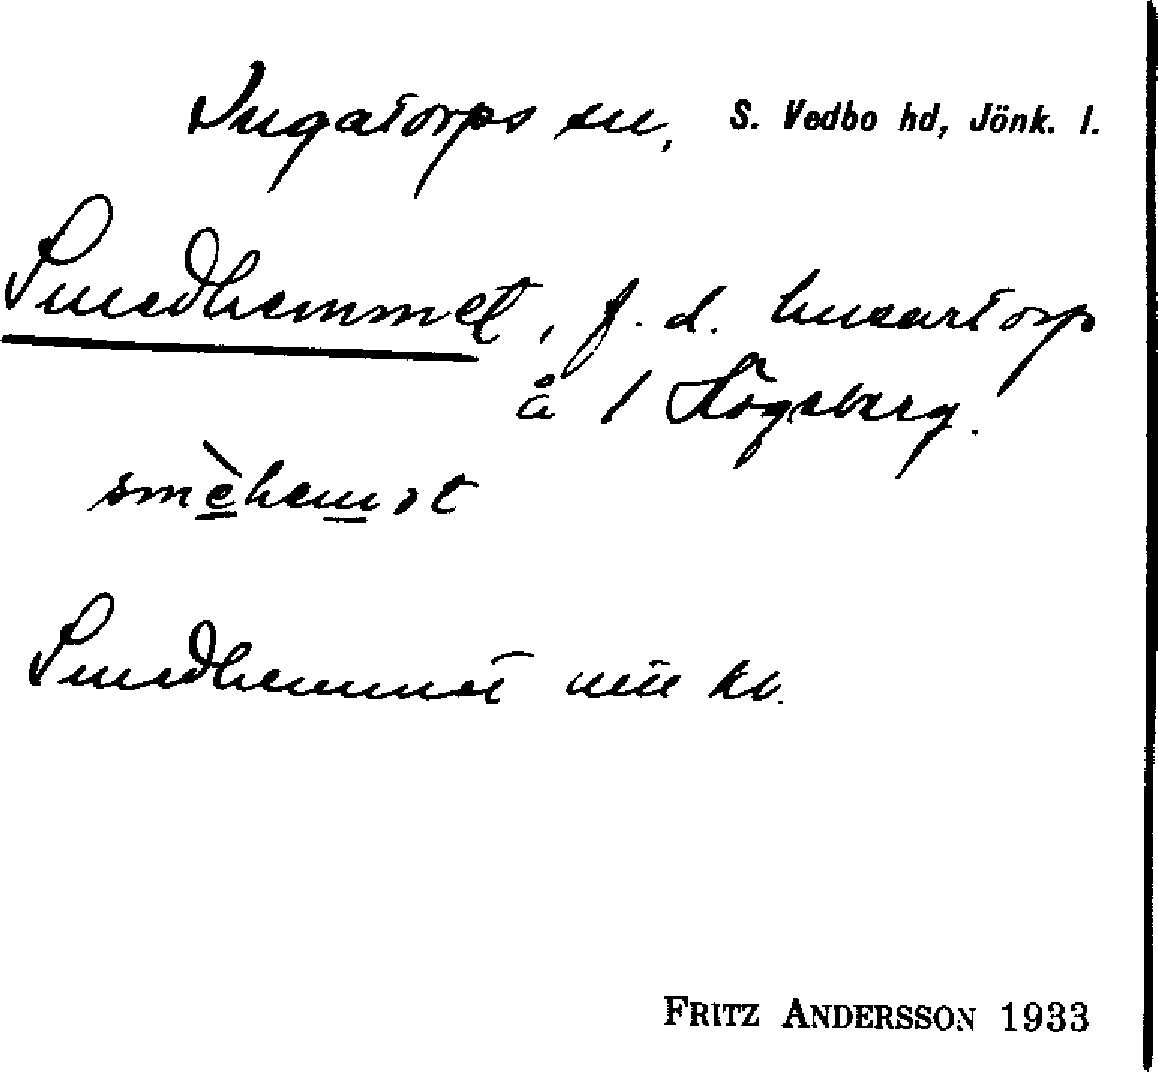 Ingatorps sn, S. Vedbo hd, Jönk. l.
Smedhemmet, f. d. husartorp
å 1 Högsberg.
smèhemət
Smedhemmet
FRITZ ANDERSSON 1933